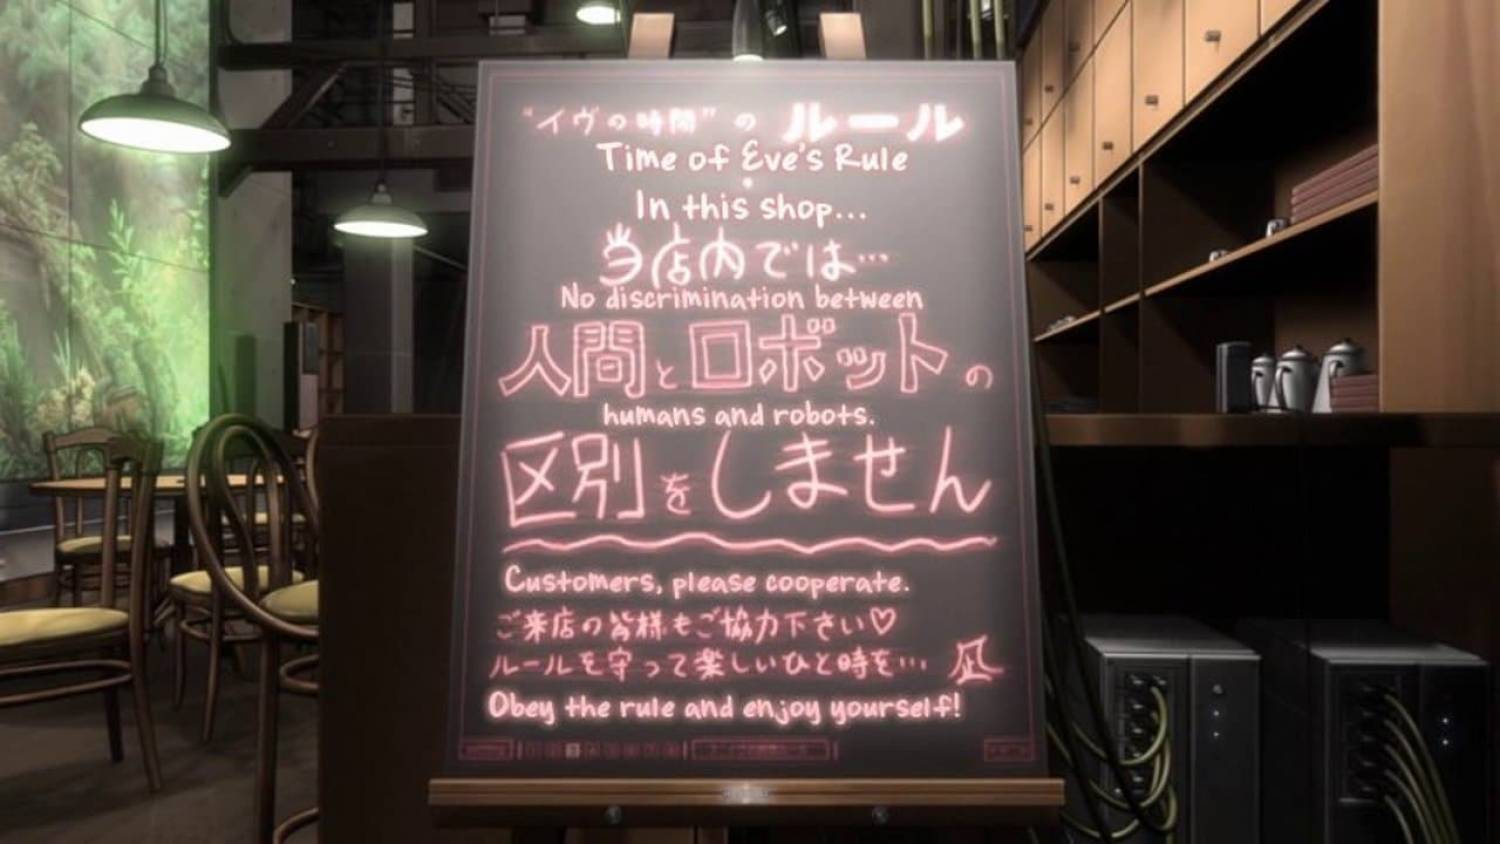 "イヴの時間" の ルール
Time of Eve's Rule
In this shop...
当店内では…
No discrimination between
人間とロボットの
humans and robots.
区別をしません
Customers, please cooperate.
ご来店の皆様もご協力下さい♡
ルールを守って楽しいひと時を… 凪
Obey the rule and enjoy yourself!